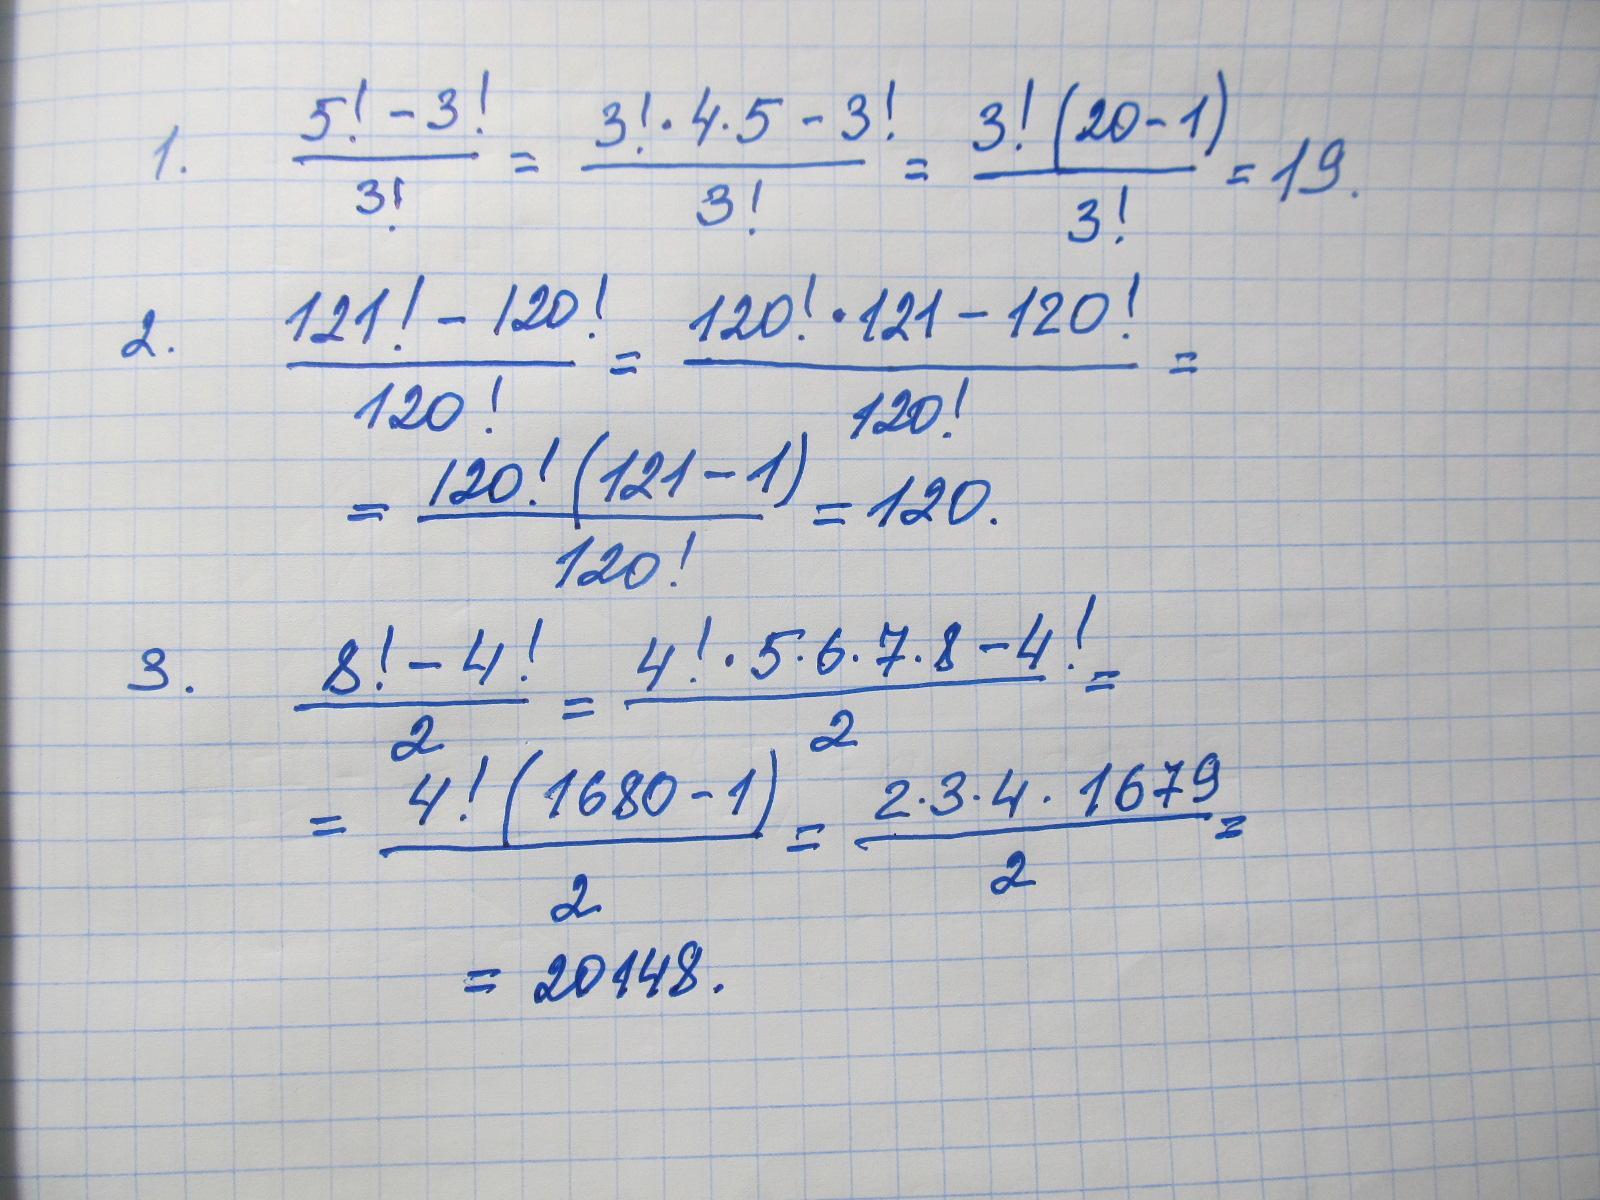 1. (5! - 3!)/3! = (3! · 4 · 5 - 3!)/3! = (3! (20 - 1))/3! = 19.
2. (121! - 120!)/120! = (120! · 121 - 120!)/120! =
= (120! (121 - 1))/120! = 120.
3. (8! - 4!)/2 = (4! · 5 · 6 · 7 · 8 - 4!)/2 =
= (4! (1680 - 1))/2 = (2 · 3 · 4 · 1679)/2 =
= 20148.